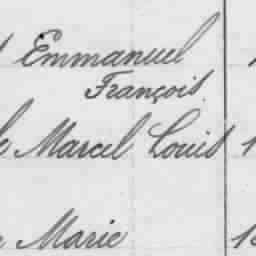 Emmanuel
François
Marcel Louis
Marie